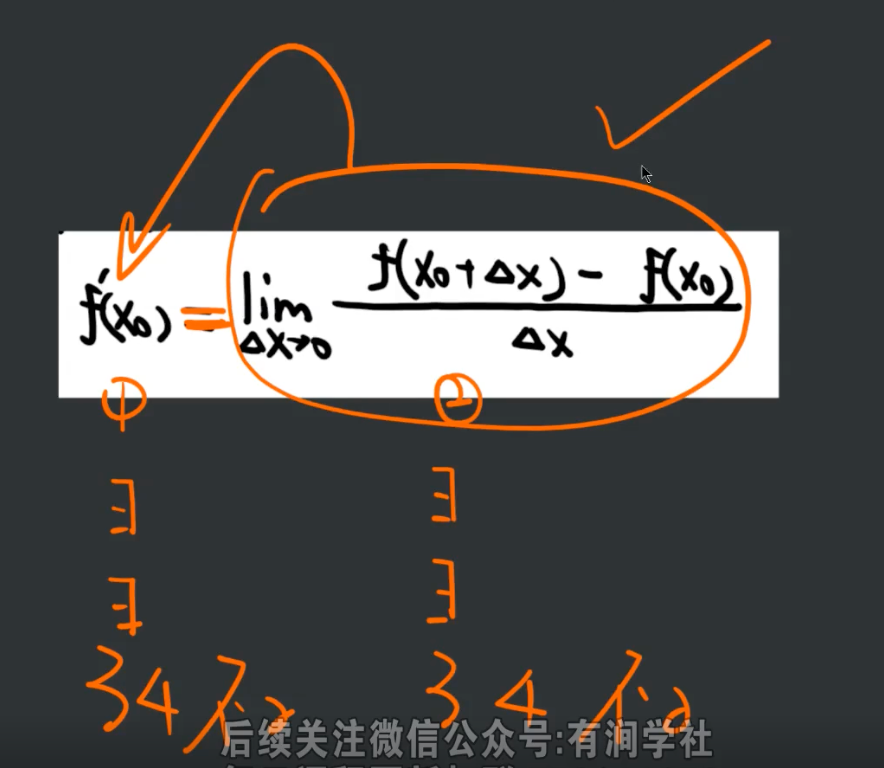 f'(x₀) = lim Δx→0 f(x₀+Δx) - f(x₀) / Δx
① ②
∃ ∃
∃ ∃
34不 34不
后续关注微信公众号:有润学社